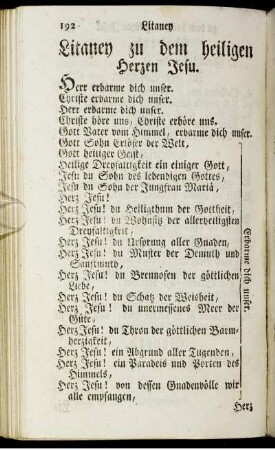 192 Litaney
Litaney zu dem heiligen
Herzen Jesu.
Herr erbarme dich unser.
Christe erbarme dich unser.
Herr erbarme dich unser.
Christe höre uns, Christe erhöre uns.
Gott Vater vom Himmel, erbarme dich unser.
Gott Sohn Erlöser der Welt,
Gott heiliger Geist,
Heilige Dreyfaltigkeit ein einiger Gott,
Jesu du Sohn des lebendigen Gottes,
Jesu du Sohn der Jungfrau Mariä,
Herz Jesu!
Herz Jesu! du Heiligthum der Gottheit,
Herz Jesu! du Wohnsitz der allerheiligsten
Dreyfaltigkeit,
Herz Jesu! du Ursprung aller Gnaden,
Herz Jesu! du Muster der Demuth und
Sanftmuth,
Herz Jesu! du Brennofen der göttlichen
Liebe,
Herz Jesu! du Schatz der Weisheit,
Herz Jesu! du unermessenes Meer der
Güte,
Herz Jesu! du Thron der göttlichen Barm-
herzigkeit,
Herz Jesu! ein Abgrund aller Tugenden,
Herz Jesu! ein Paradeis und Porten des
Himmels,
Herz Jesu! von dessen Gnadenvölle wir
alle empfangen,
Erbarme dich unser.
Herz